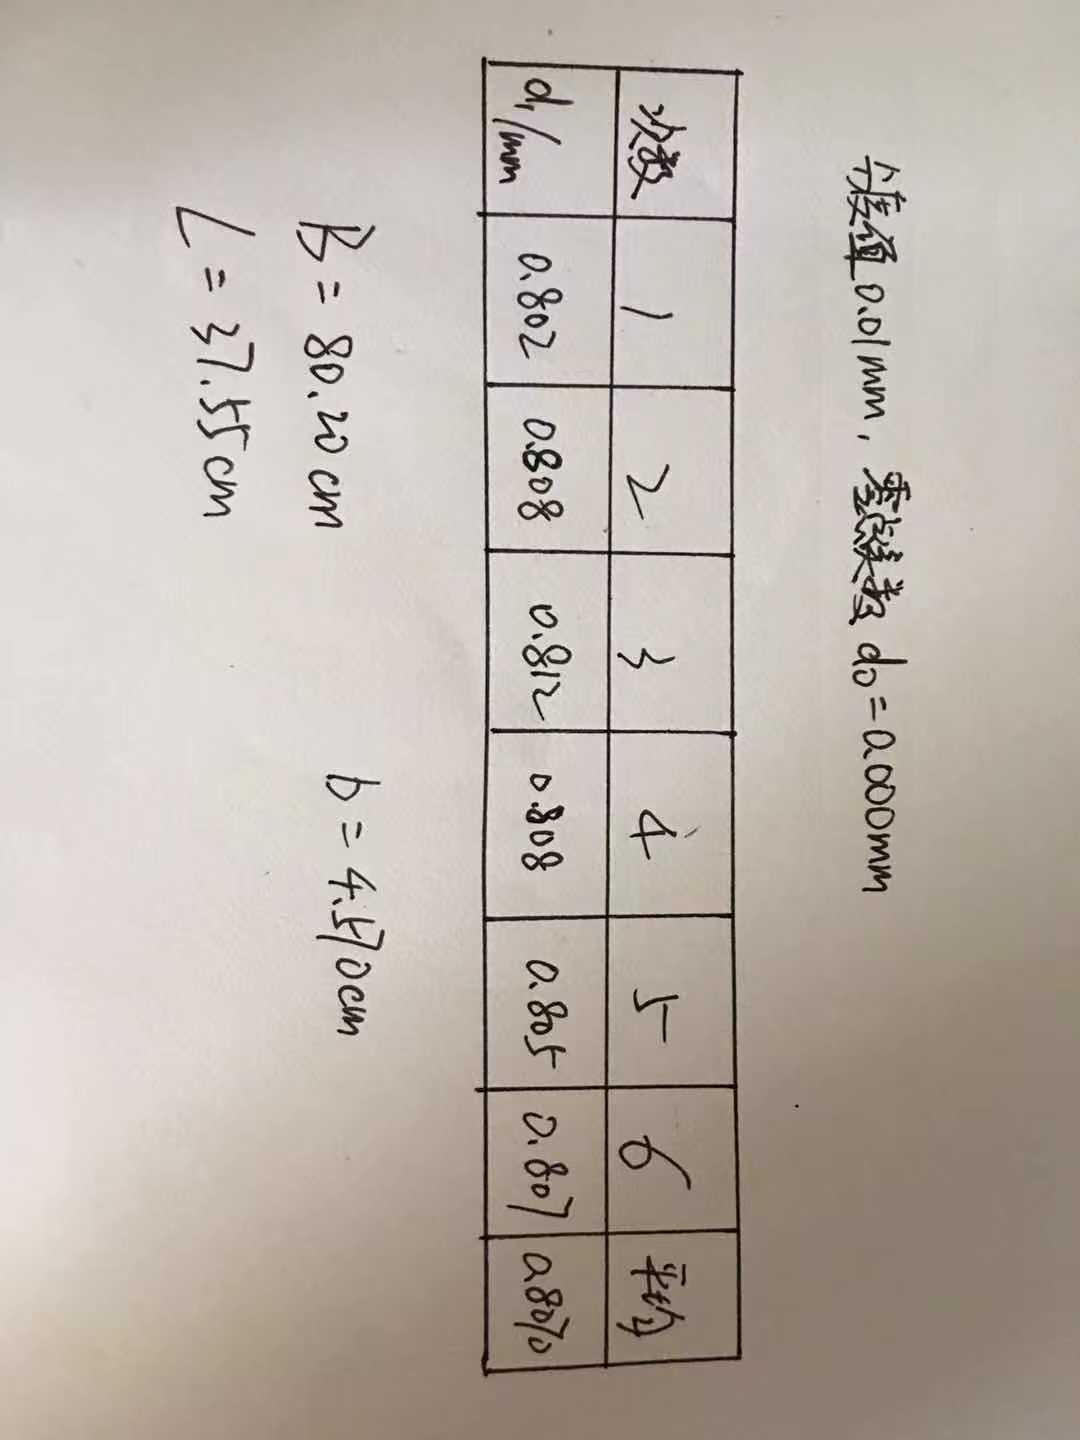 分度值0.01mm，零点读数d0=0.000mm
次数 1 2 3 4 5 6 平均
d1/mm 0.802 0.808 0.812 0.808 0.805 0.807 0.8070
B=80.20cm b=4.570cm
L=37.55cm